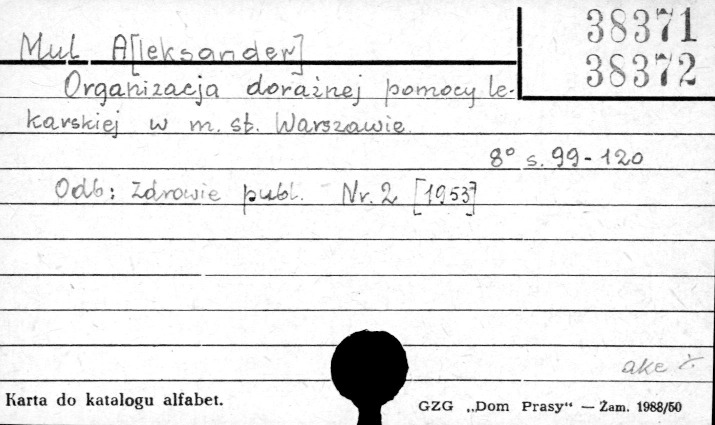 38371
38372
Mul A[leksander]
Organizacja doraźnej pomocy le-
karskiej w m. st. Warszawie.
8° s. 99-120
Odb: Zdrowie publ. Nr. 2 [1953]
ake
Karta do katalogu alfabet.
GZG „Dom Prasy“ — Zam. 1988/50